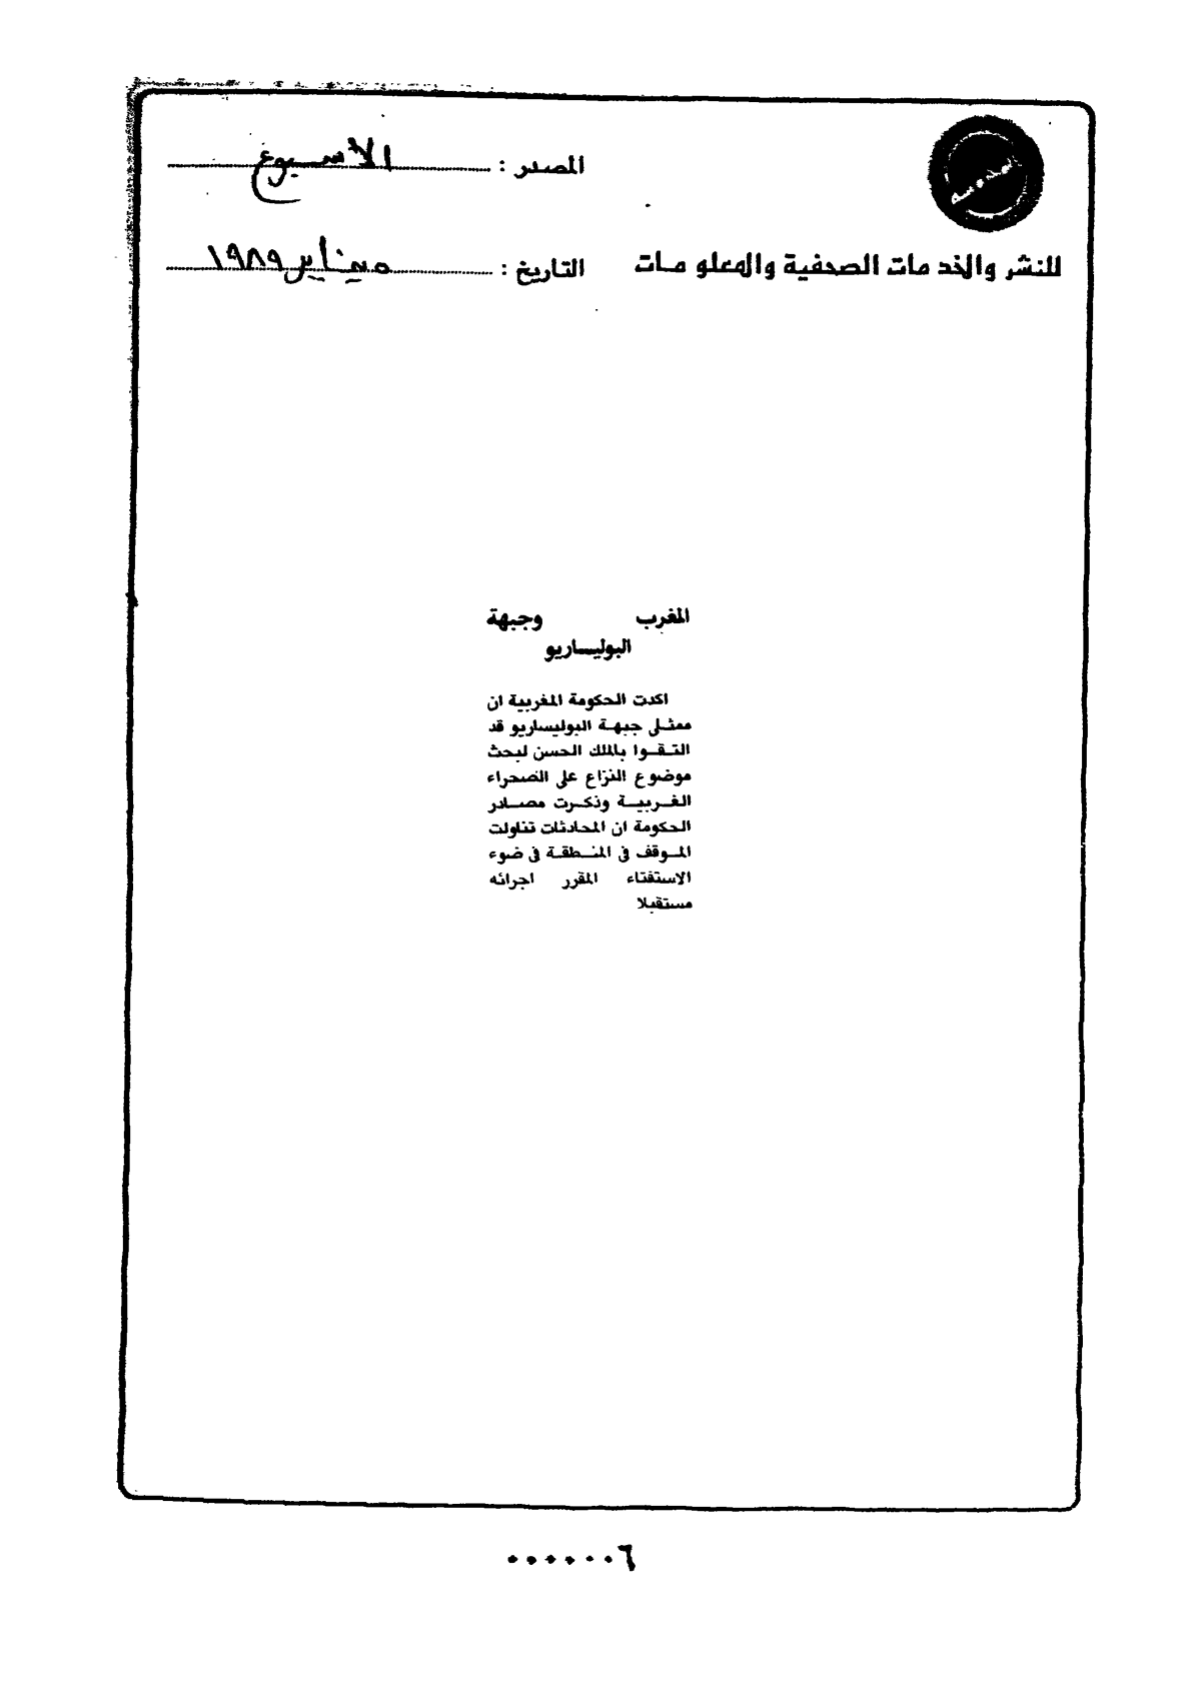 المصدر : الأسبوع
للنشر والخد مات الصحفية والمعلو مات
التاريخ : ٥ يناير ١٩٨٩
المغرب وجبهة
البوليساريو
اكدت الحكومة المغربية ان
ممثلى جبهة البوليساريو قد
التقوا بالملك الحسن لبحث
موضوع النزاع على الصحراء
الغربية وذكرت مصادر
الحكومة ان المحادثات تناولت
الموقف فى المنطقة فى ضوء
الاستفتاء المقرر اجرائه
مستقبلا
٠٠٠٠٠٠٦